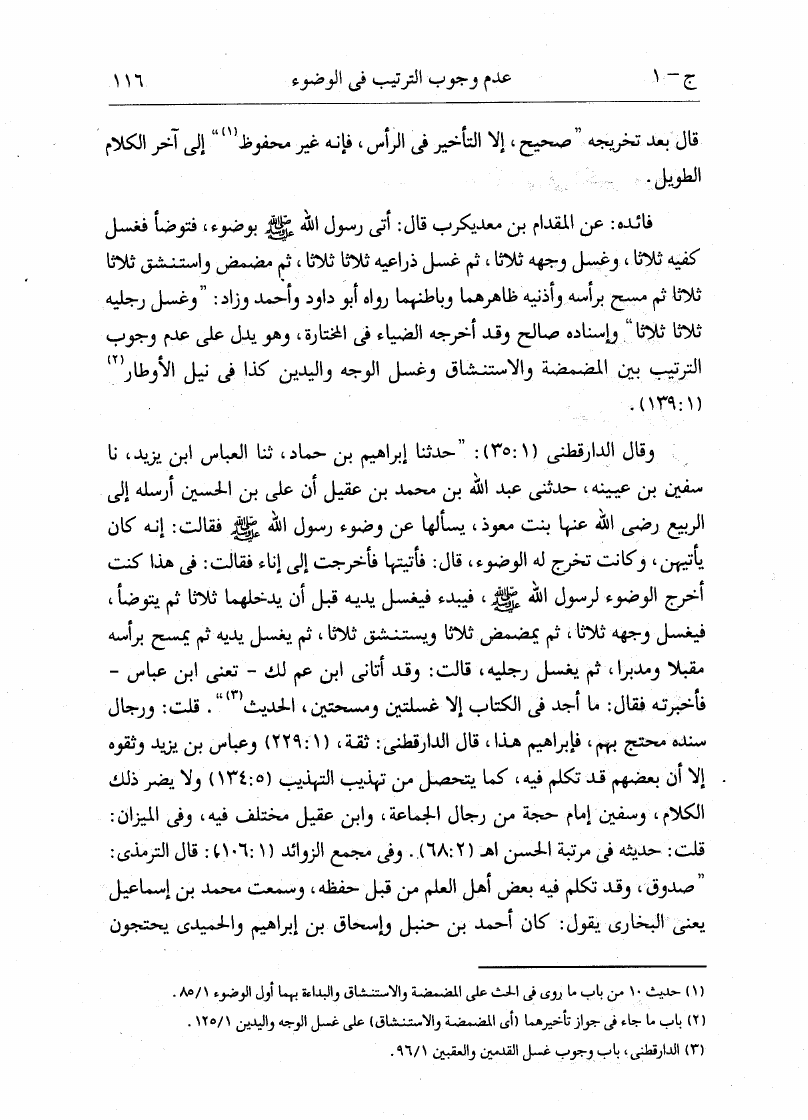 ج - ١ عدم وجوب الترتيب فى الوضوء ١١٦
قال بعد تخريجه "صحيح، إلا التأخير فى الرأس، فإنه غير محفوظ(١)" إلى آخر الكلام
الطويل.
فائده: عن المقدام بن معديكرب قال: أتى رسول الله ﷺ بوضوء، فتوضأ فغسل
كفيه ثلاثا، وغسل وجهه ثلاثا، ثم غسل ذراعيه ثلاثا ثلاثا، ثم مضمض واستنشق ثلاثا
ثلاثا ثم مسح برأسه وأذنيه ظاهرهما وباطنهما رواه أبو داود وأحمد وزاد: "وغسل رجليه
ثلاثا ثلاثا" وإسناده صالح وقد أخرجه الضياء فى المختارة، وهو يدل على عدم وجوب
الترتيب بين المضمضة والاستنشاق وغسل الوجه واليدين كذا فى نيل الأوطار(٢)
(١:١٣٩).
وقال الدارقطنى (١:٣٥): "حدثنا إبراهيم بن حماد، ثنا العباس ابن يزيد، نا
سفين بن عيينه، حدثنى عبد الله بن محمد بن عقيل أن على بن الحسين أرسله إلى
الربيع رضى الله عنها بنت معوذ، يسألها عن وضوء رسول الله ﷺ فقالت: إنه كان
يأتيهن، وكانت تخرج له الوضوء، قال: فأتيتها فأخرجت إلى إناء فقالت: فى هذا كنت
أخرج الوضوء لرسول الله ﷺ، فيبدء فيغسل يديه قبل أن يدخلهما ثلاثا ثم يتوضأ،
فيغسل وجهه ثلاثا، ثم يمضمض ثلاثا ويستنشق ثلاثا، ثم يغسل يديه ثم يمسح برأسه
مقبلا ومدبرا، ثم يغسل رجليه، قالت: وقد أتانى ابن عم لك - تعنى ابن عباس -
فأخبرته فقال: ما أجد فى الكتاب إلا غسلتين ومسحتين، الحديث(٣)". قلت: ورجال
سنده محتج بهم، فإبراهيم هذا، قال الدارقطنى: ثقة، (١:٢٢٩) وعباس بن يزيد وثقوه
إلا أن بعضهم قد تكلم فيه، كما يتحصل من تهذيب التهذيب (٥:١٣٤) ولا يضر ذلك
الكلام، وسفين إمام حجة من رجال الجماعة، وابن عقيل مختلف فيه، وفى الميزان:
قلت: حديثه فى مرتبة الحسن اهـ (٢:٦٨). وفى مجمع الزوائد (١:١٠٦): قال الترمذى:
"صدوق، وقد تكلم فيه بعض أهل العلم من قبل حفظه، وسمعت محمد بن إسماعيل
يعنى البخارى يقول: كان أحمد بن حنبل وإسحاق بن إبراهيم والحميدى يحتجون
(١) حديث ١٠ من باب ما روى فى الحث على المضمضة والاستنشاق والبداءة بهما أول الوضوء ٨٥/١.
(٢) باب ما جاء فى جواز تأخيرهما (أى المضمضة والاستنشاق) على غسل الوجه واليدين ١٢٥/١.
(٣) الدارقطنى، باب وجوب غسل القدمين والعقبين ٩٦/١.